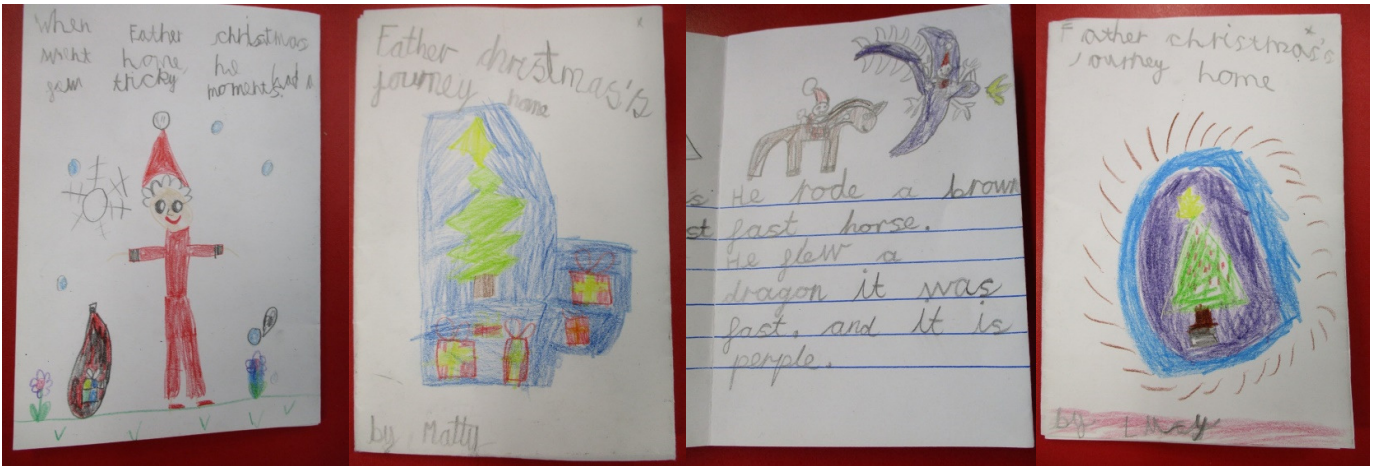 When Father christmas
went home, he had a
few tricky moments.
Father christmas's
journey home
by Matty
s
st
He rode a brown
fast horse.
He flew a
dragon it was
fast. and it is
perple.
Father christmas's
Journey home
by Lucy